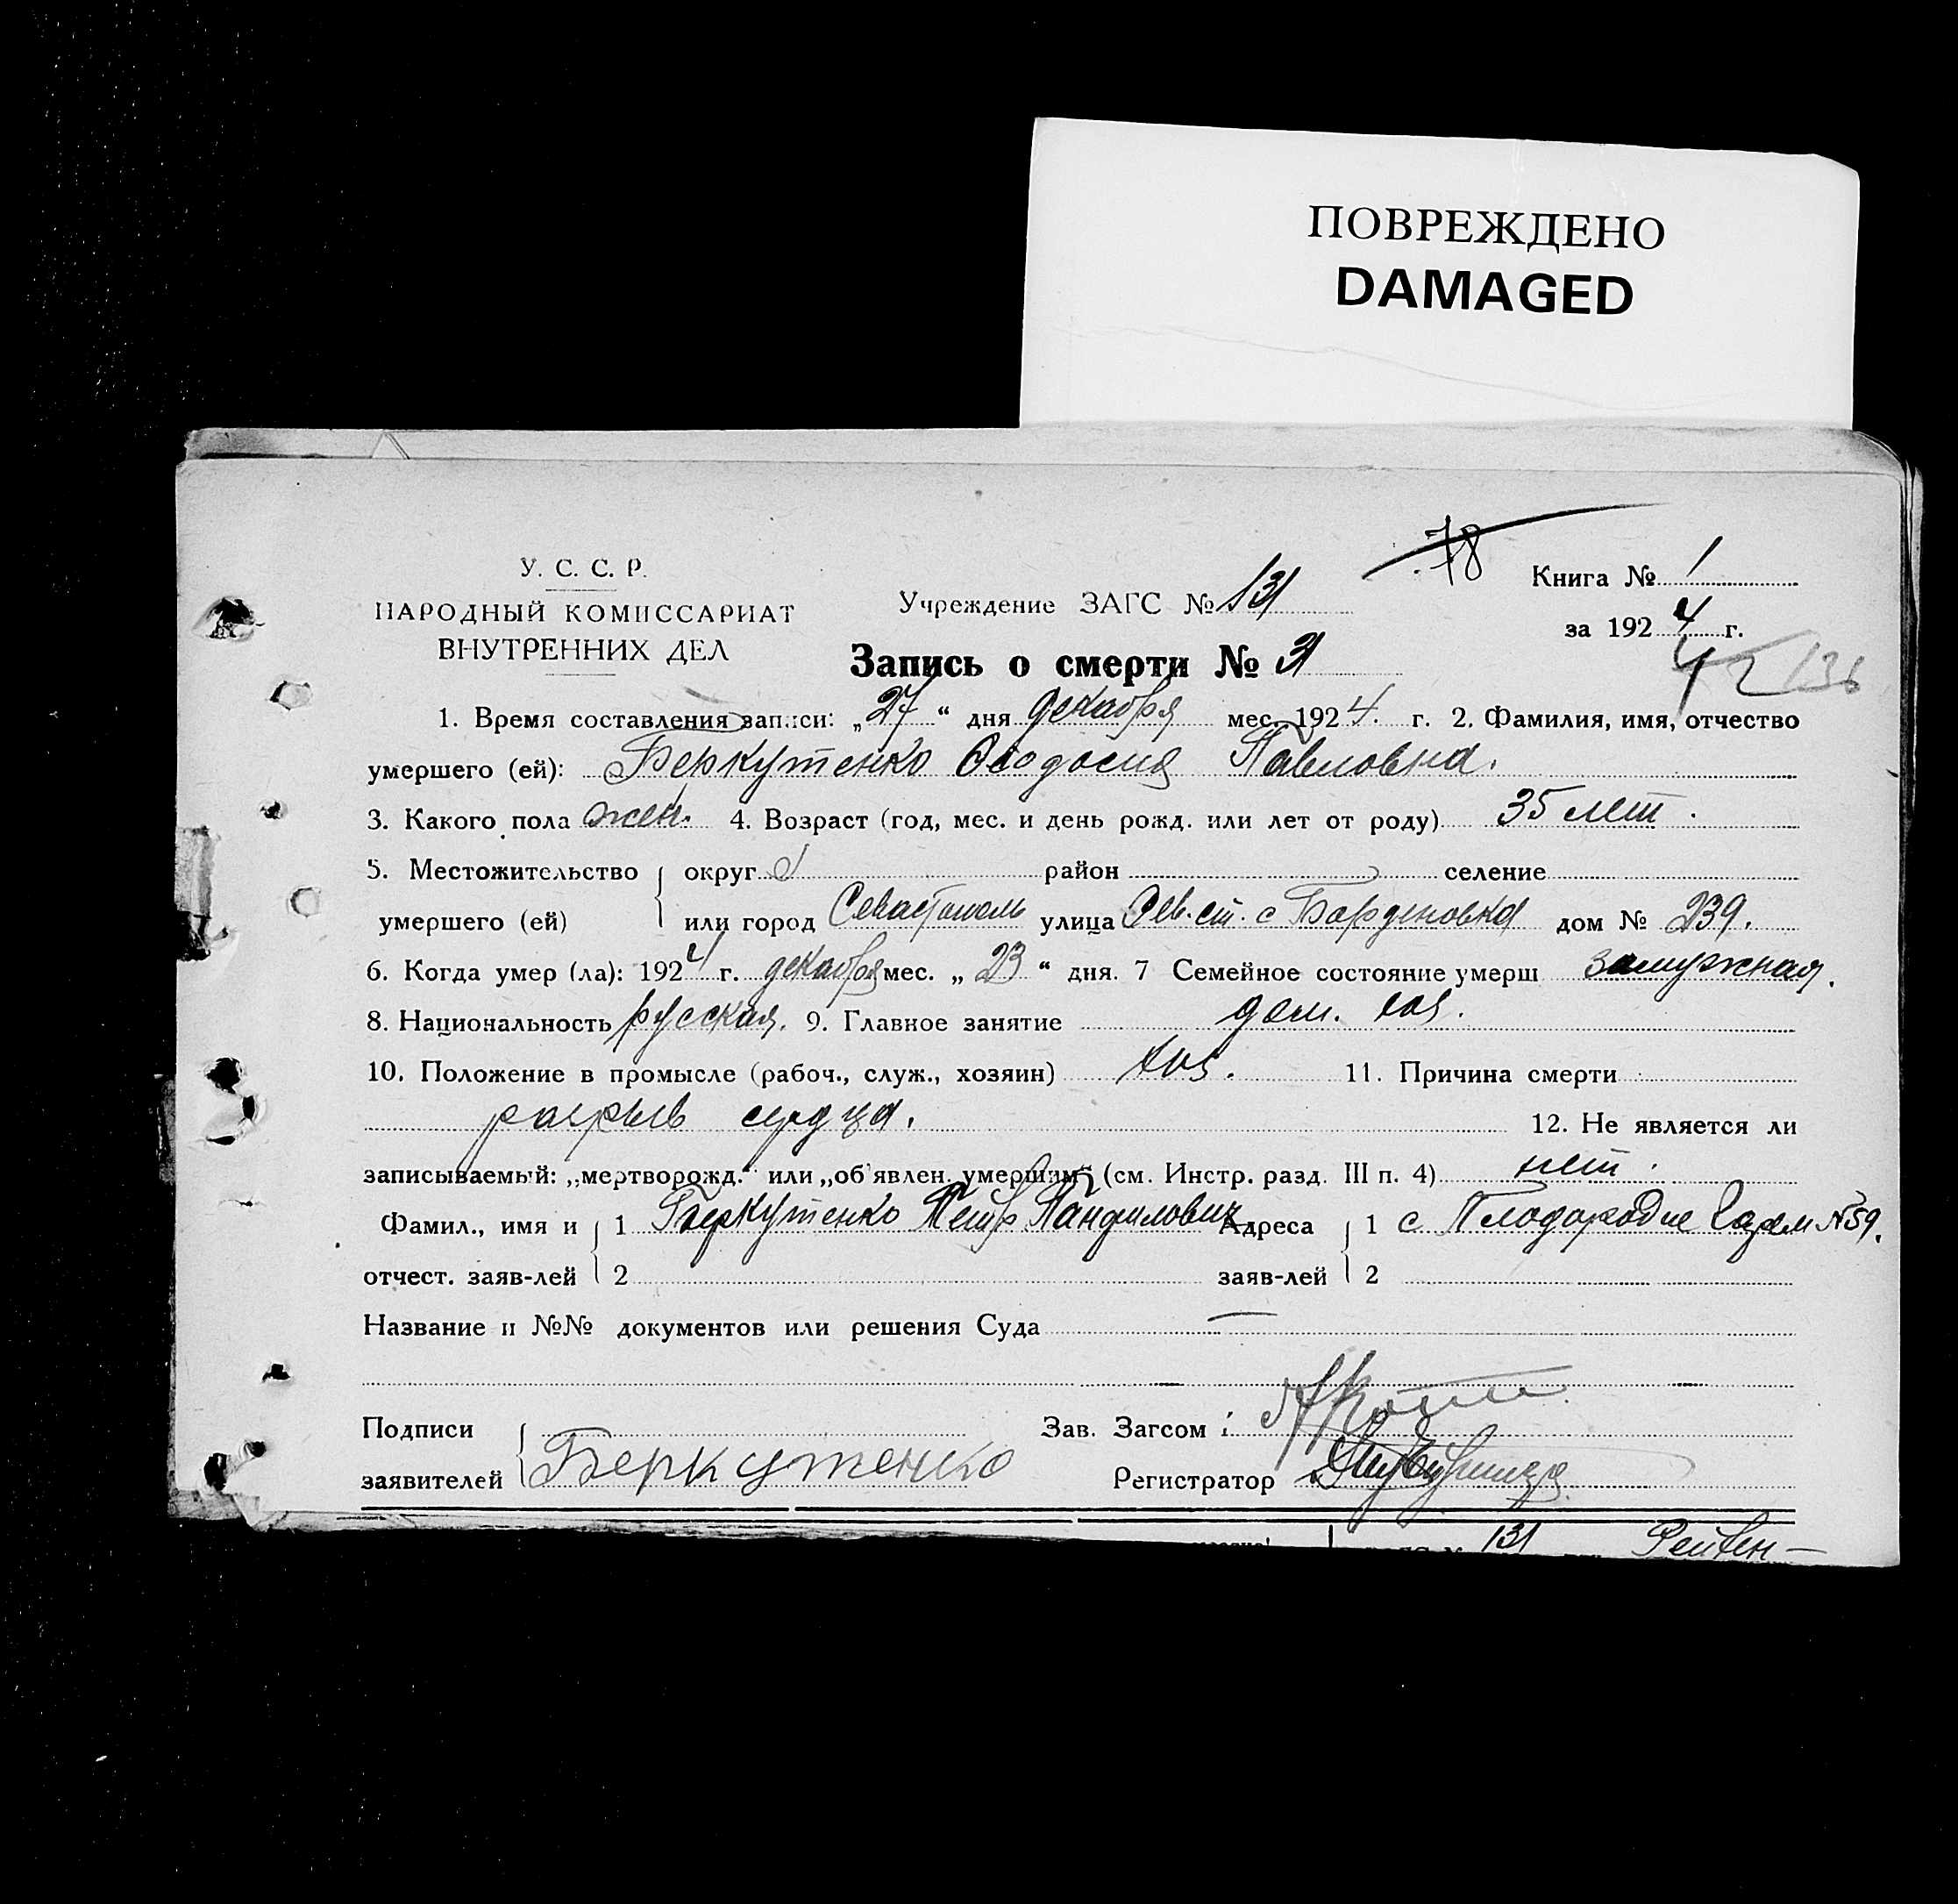 ПОВРЕЖДЕНО
DAMAGED
78
У. С. С. Р.
НАРОДНЫЙ КОМИССАРИАТ
ВНУТРЕННИХ ДЕЛ
Учреждение ЗАГС № 131
Книга № 1
за 1924 г.
136
Запись о смерти № 31
1. Время составления записи: „27“ дня декабря мес. 1924. г. 2. Фамилия, имя, отчество
умершего (ей): Беркутенко Феодосия Павловна.
3. Какого пола жен. 4. Возраст (год, мес. и день рожд. или лет от роду) 35 лет.
5. Местожительство округ район селение
умершего (ей) или город Севастополь улица с дом № 239.
6. Когда умер (ла): 1924 г. декабря мес. „23“ дня. 7 Семейное состояние умерш замужная.
8. Национальность русская. 9. Главное занятие дом. хоз.
10. Положение в промысле (рабоч., служ., хозяин) хоз. 11. Причина смерти
разрыв сердца. 12. Не является ли
записываемый: „мертворожд.“ или „об'явлен. умершим“ (см. Инстр. разд. III п. 4) нет.
Фамил., имя и 1 Беркутенко Петр Панфилович Адреса 1 с Плодородие №59.
отчест. заяв-лей 2 заяв-лей 2
Название и №№ документов или решения Суда —
Подписи Зав. Загсом:
заявителей Беркутенко Регистратор
131 Рейхен-